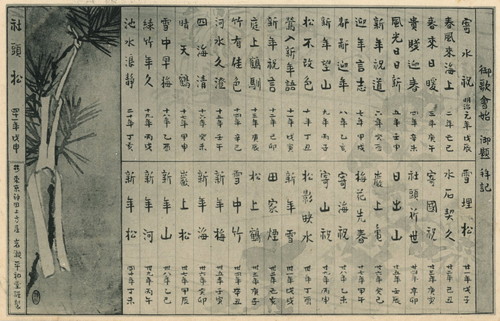 御歌會始 御題 年記
寄水祝 明治元年戊辰
春風来海上 二年己巳
春来日暖 三年庚午
貴賤迎春 四年辛未
風光日日新 五年壬申
新年祝道 六年癸酉
迎年言志 七年甲戌
都鄙迎年 八年乙亥
新年望山 九年丙子
松不改色 十年丁丑
鶯入新年語 十一年戊寅
新年祝言 十二年己卯
庭上鶴馴 十三年庚辰
竹有佳色 十四年辛巳
河水久澄 十五年壬午
四海清 十六年癸未
晴天鶴 十七年甲申
雪中早梅 十八年乙酉
緑竹年久 十九年丙戌
池水浪静 二十年丁亥
雪埋松 廿一年戊子
水石契久 廿二年己丑
寄國祝 廿三年庚寅
社頭祈世 廿四年辛卯
日出山 廿五年壬辰
巌上亀 廿六年癸巳
梅花先春 廿七年甲午
寄海祝 廿八年乙未
寄山祝 廿九年丙申
松影映水 三十年丁酉
新年雪 卅一年戊戌
田家煙 卅二年己亥
松上鶴 卅三年庚子
雪中竹 卅四年辛丑
新年梅 卅五年壬寅
新年海 卅六年癸卯
巌上松 卅七年甲辰
新年山 卅八年乙巳
新年河 卅九年丙午
新年松 四十年丁未
社頭松 四十一年戊申
東京神田